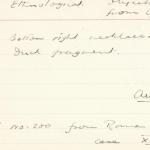 Ethnological
from
Bottom right necklace
Duck fragment.
no. 200 from Roman
case X